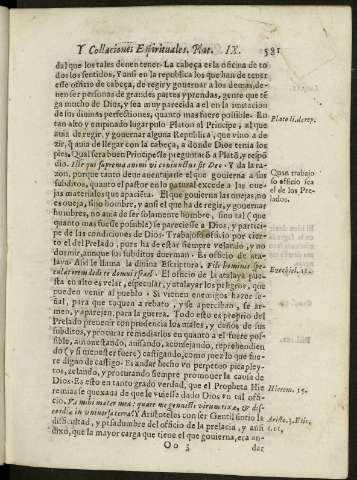 Y Collaciones Espirituales. Plat. IX. 581
dal que los tales deuen tener. La cabeça es la oficina de to
dos los sentidos, Y ansi en la republica los que han de tener
esse oficio de cabeça, de regir y gouernar a los demas, de-
uen ser personas de grandes partes y prendas, gente que tē
ga mucho de Dios, y sea muy parecida a el en la imitacion
de sus diuinas perfectiones, quanto mas fuere possible. En
tan alto y empinado lugar puso Platon al Principe, al que
auia de regir, y gouernar alguna Republica, que vino a de
zir, q̄ auia de llegar con la cabeça, a donde Dios tenia los
pies. Qual sera buen Principe? le preguntarō a Platō, y respō
dio. Y da la ra-
zon, porque tanto deue auentajarse el que gouierna a sus
subditos, quanto el pastor en lo natural excede a las oue-
jas materiales que apacienta. El que gouierna las ouejas, no
es oueja, sino hombre, y ansi el que ha de regir, y gouernar
humbres, no auia de ser solamente hombre, sino tal (que
quanto mas fuesse possible) se pareciesse a Dios, y partici-
pe de las condiciones de Dios. Trabajoso oficio por cier-
to el del Prelado, pues ha de estar siempre velando, y no
dormir, aunque sus subditos duerman. Es oficio de ata-
laya. Assi le llama la diuina Escriptura. Fili hominis spe-
culatorem dedi te domui Israel. El oficio de la atalaya pue-
sta en alto es velar, especular, y atalayar los peligros, que
pueden venir al pueblo. Si vienen enemigos hazer se-
ñal, para que toquen a rebato, y se aperciban, se ar-
men, y aparejen, para la guerra. Todo esto es proprio del
Prelado preuenir con prudencia los males, y daños de sus
subditos, y procurar remediarlos en quanto a el fuere pos-
sible, amonestando, auisando, aconsejando, reprehendien
do (y si menester fuere) castigando, como juez lo que fue-
re digno de castigo. Es andar hecho vn perpetuo picapley-
tos, zelando, y procurando siempre promouer la causa de
Dios. Es esto en tanto grado verdad, que el Propheta Hie
remias se quexaua de que le vuiesse dado Dios en tal ofi-
cio. Væ mihi mater mea: quare me genuisti virum rixæ, & dis-
cordiæ in vniuersa terra? Y Aristoteles con ser Gentil sintio la
dificultad, y pesadumbre del oficio de la prelacia, y ansi
dixo, que la mayor carga que tiene el que gouierna, era an-
Oo 3 dar
Plato li. de rep.
Quan trabajo
so oficio sea
el de los Pre-
lados.
Ezechiel.
Hierem. 15.
Aristo. 3. Etic.